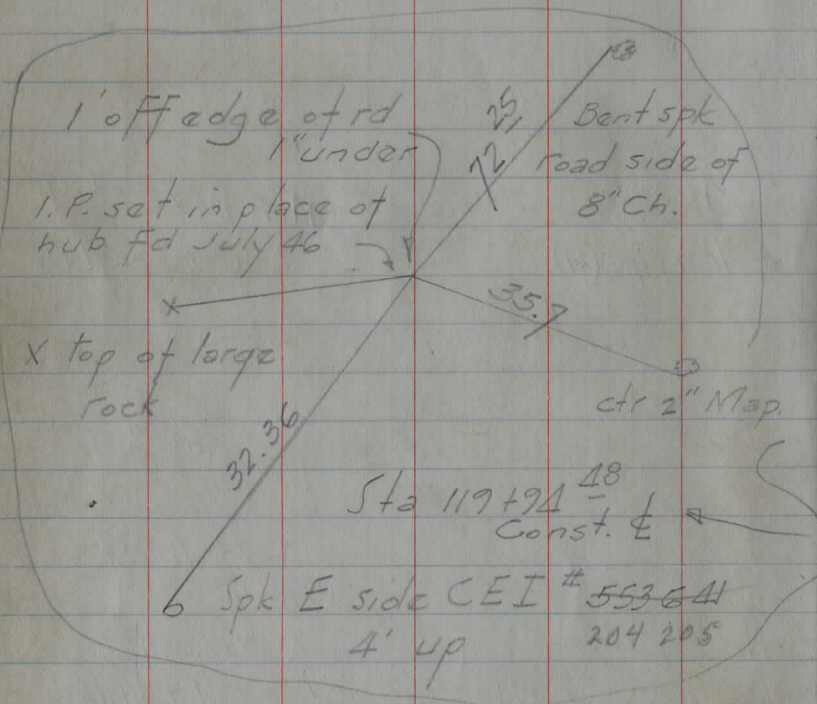 1' off edge of rd
1" under
I.P. set in place of
hub fd July 46
Bent spk
road side of
8" Ch.
35.7
X top of large
rock
ctr 2" Map.
32.36
Sta 119+94 48
Const. ℄
Spk E side CEI # 553641
204 205
4' up